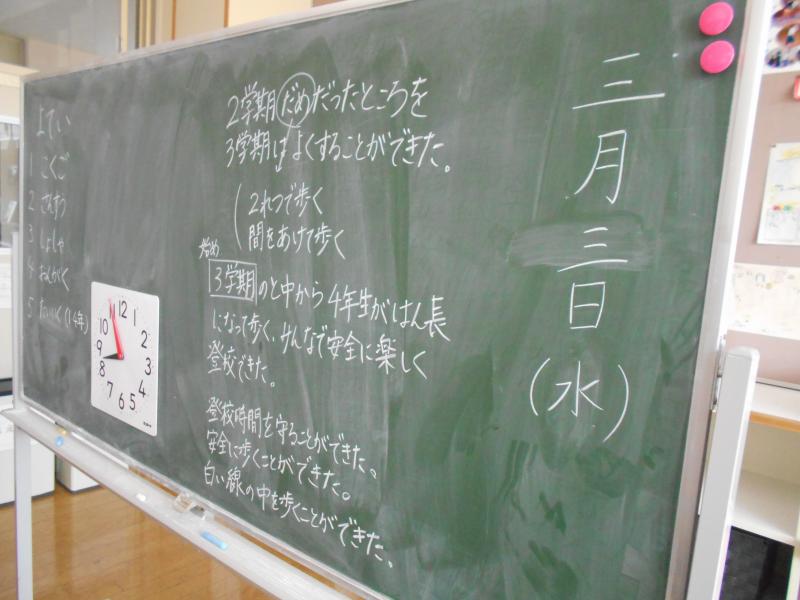 三月三日(水)
2学期だめだったところを
3学期はよくすることができた。
2れつで歩く
間をあけて歩く
始め
3学期のと中から4年生がはん長
になって歩く、みんなで安全に楽しく
登校できた。
登校時間を守ることができた。
安全に歩くことができた。
白い線の中を歩くことができた。
よてい
1 こくご
2 さんすう
3 しょしゃ
4 おんがく
5 たいいく(14年)
12
1
2
3
4
5
6
7
8
9
10